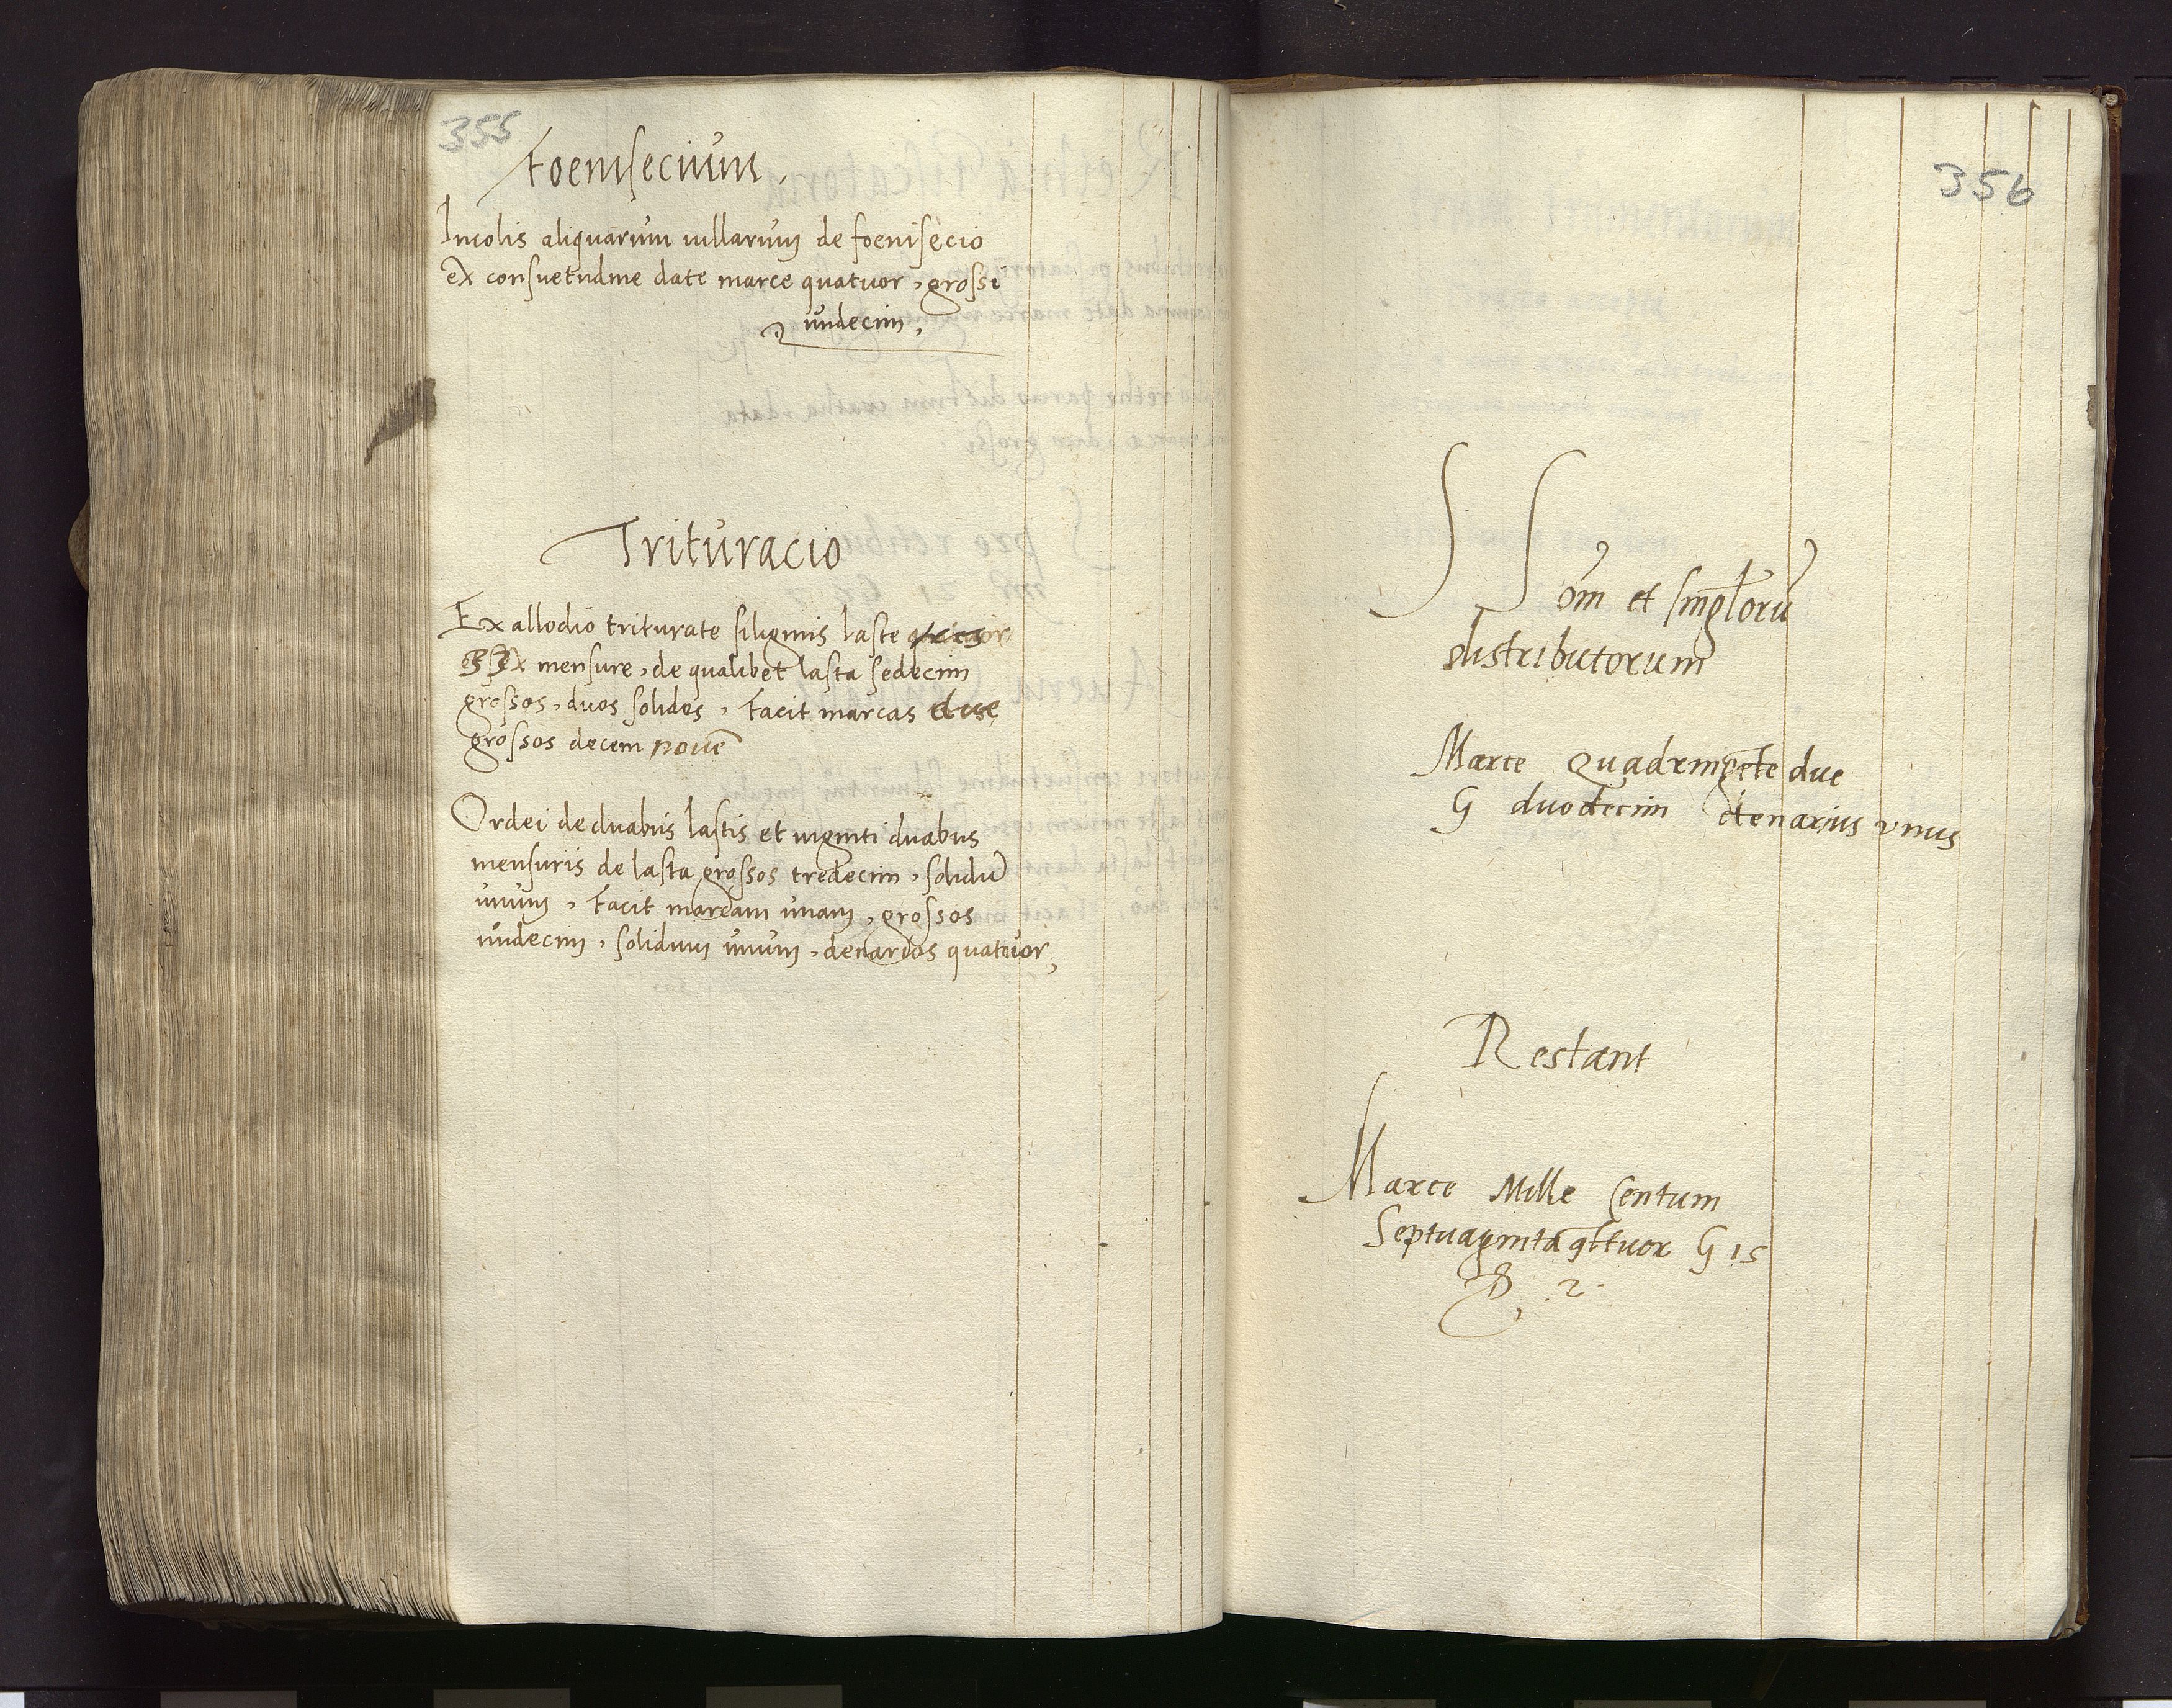 355
Foenisecium,
Incolis aliquarum villarum de foenisecio
ex consuetudine date marce quatuor, grossi
undecim,
Trituracio
Ex allodio triturate siliginis laste
mensure, de qualibet lasta sedecim
grossos, duos solidos, Facit marcas due
grossos decem novē
Ordei de duabus lastis et viginti duabus
mensuris de lasta grossos tredecim, solidū
unum, Facit marcam unam, grossos
undecim, solidum unum, denarios quatuor,
356
S S om̄ et singl̄orū
distributorum
Marce Quadringēte due
G duodecim denarius vnus
Restant
Marce Mille Centum
Septuaginta q̄tuor G 15
₰ . 2 .